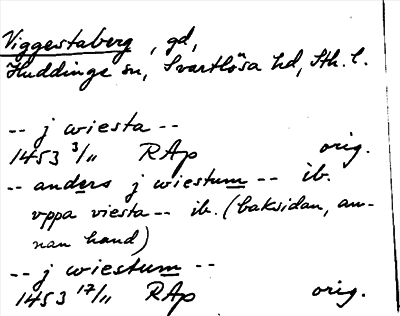 Viggestaberg, gd,
Huddinge sn, Svartlösa hd, Sth. l.
-- j wiesta --
1453 3/11 RAp orig.
-- anders j wiestum -- ib.
vppa viesta -- ib. (baksidan, an-
nan hand)
-- j wiestum --
1453 17/11 RAp orig.